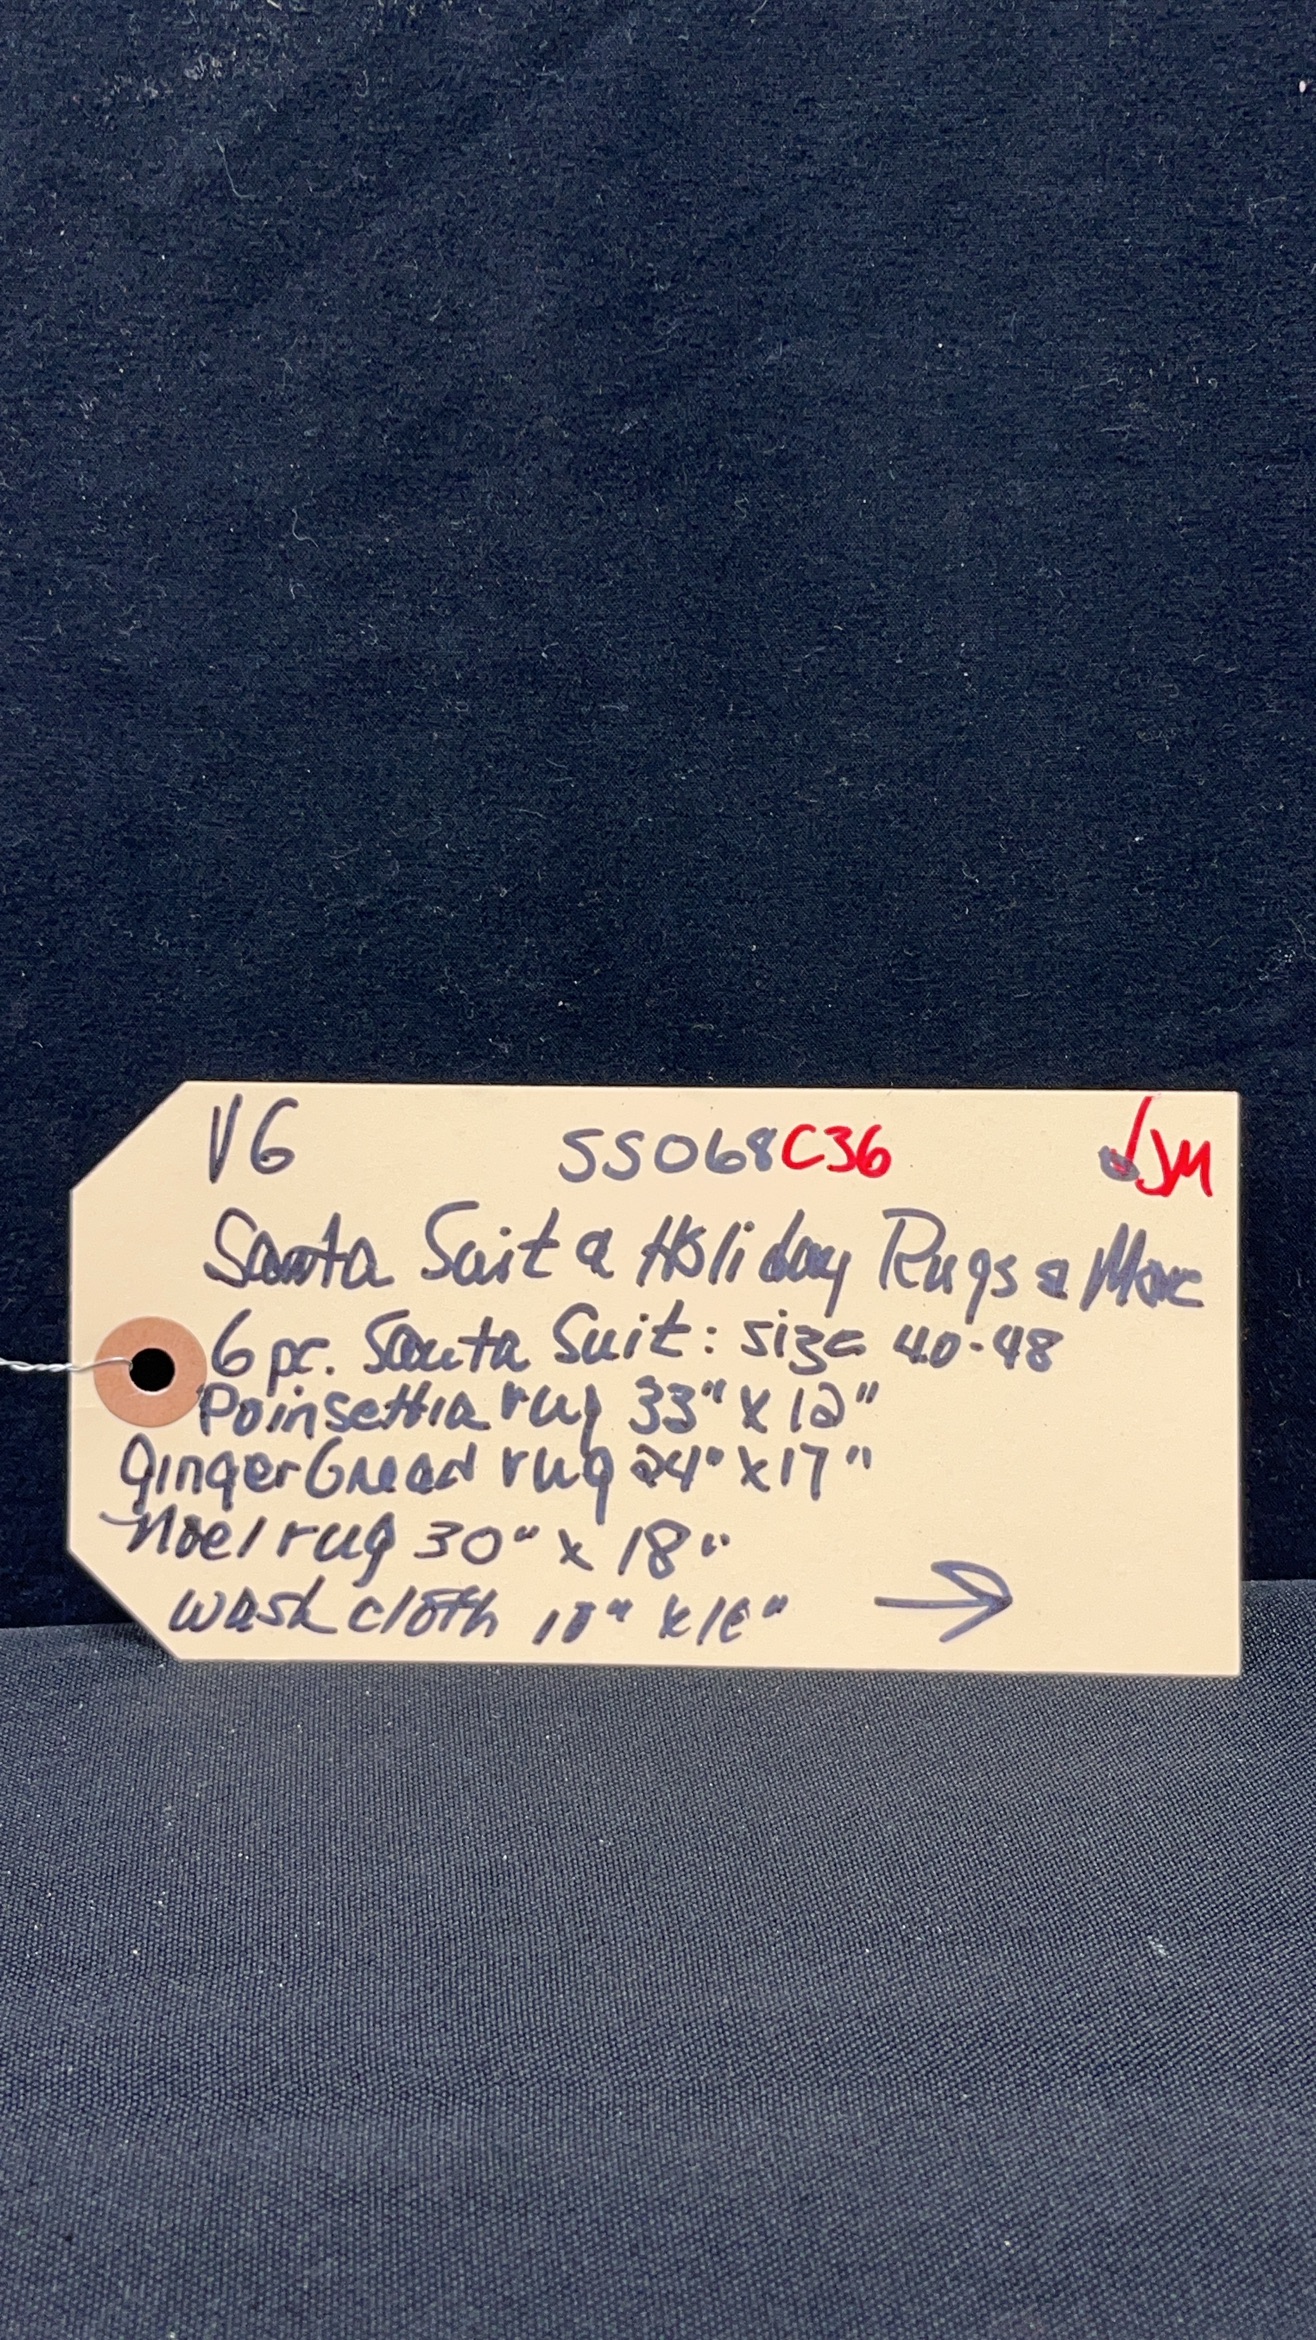 V6 SS068C36 JM
Santa Suit & Holiday Rugs & More
6 pc. Santa Suit: size 40-48
Poinsettia rug 33" x 12"
GingerBread rug 24" x 17"
Noel rug 30" x 18"
wash cloth
→